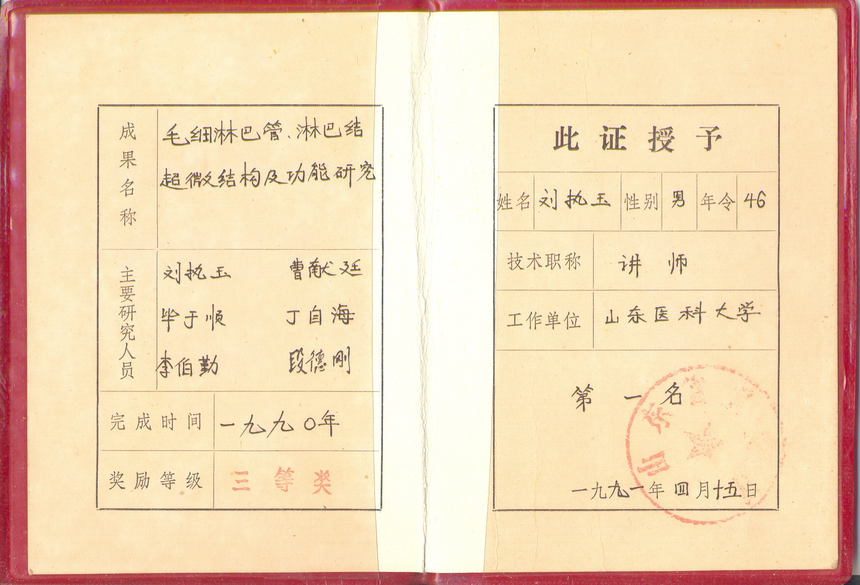 成果名称
毛细淋巴管、淋巴结
超微结构及功能研究
主要研究人员
刘执玉 曹献廷
毕于顺 丁自海
李伯勤 段德刚
完成时间 一九九〇年
奖励等级 三等奖
此证授予
姓名 刘执玉 性别 男 年令 46
技术职称 讲师
工作单位 山东医科大学
第一名
山东省
一九九一年四月十五日